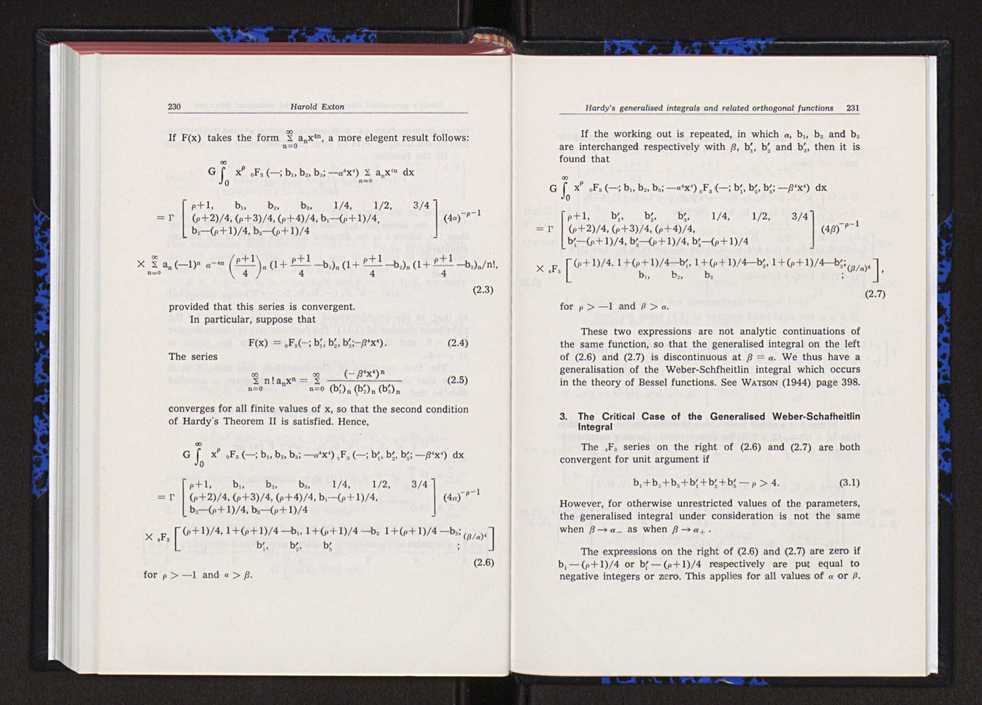 230 Harold Exton
If F(x) takes the form ∞ Σ n=0 aₙx⁴ⁿ, a more elegent result follows:
G ∫₀^∞ x^ρ ₀F₃ (—; b₁, b₂, b₃; —α⁴x⁴) ∞ Σ n=0 aₙx⁴ⁿ dx
= Γ [ ρ+1, b₁, b₂, b₃, 1/4, 1/2, 3/4
(ρ+2)/4, (ρ+3)/4, (ρ+4)/4, b₁—(ρ+1)/4,
b₂—(ρ+1)/4, b₃—(ρ+1)/4 ] (4α)^{-ρ-1}
× ∞ Σ n=0 aₙ (—1)ⁿ α^{-4n} ((ρ+1)/4)ₙ (1+ (ρ+1)/4 —b₁)ₙ (1+ (ρ+1)/4 —b₂)ₙ (1+ (ρ+1)/4 —b₃)ₙ/n!,
(2.3)
provided that this series is convergent.
In particular, suppose that
F(x) = ₀F₃(—; b′₁, b′₂, b′₃;—β⁴x⁴). (2.4)
The series
∞ Σ n=0 n!aₙxⁿ = ∞ Σ n=0 (—β⁴x⁴)ⁿ / (b′₁)ₙ (b′₂)ₙ (b′₃)ₙ (2.5)
converges for all finite values of x, so that the second condition
of Hardy's Theorem II is satisfied. Hence,
G ∫₀^∞ x^ρ ₀F₃ (—; b₁, b₂, b₃; —α⁴x⁴) ₀F₃ (—; b′₁, b′₂, b′₃; —β⁴x⁴) dx
= Γ [ ρ+1, b₁, b₂, b₃, 1/4, 1/2, 3/4
(ρ+2)/4, (ρ+3)/4, (ρ+4)/4, b₁—(ρ+1)/4,
b₂—(ρ+1)/4, b₃—(ρ+1)/4 ] (4α)^{-ρ-1}
× ₄F₃ [ (ρ+1)/4, 1+(ρ+1)/4 —b₁, 1+(ρ+1)/4 —b₂ 1+(ρ+1)/4 —b₃; (β/α)⁴
b′₁, b′₂, b′₃ ; ]
(2.6)
for ρ > —1 and α > β.
Hardy's generalised integrals and related orthogonal functions 231
If the working out is repeated, in which α, b₁, b₂ and b₃
are interchanged respectively with β, b′₁, b′₂ and b′₃, then it is
found that
G ∫₀^∞ x^ρ ₀F₃ (—; b₁, b₂, b₃; —α⁴x⁴) ₀F₃ (—; b′₁, b′₂, b′₃; —β⁴x⁴) dx
= Γ [ ρ+1, b′₁, b′₂, b′₃, 1/4, 1/2, 3/4
(ρ+2)/4, (ρ+3)/4, (ρ+4)/4,
b′₁—(ρ+1)/4, b′₂—(ρ+1)/4, b′₃—(ρ+1)/4 ] (4β)^{-ρ-1}
× ₄F₃ [ (ρ+1)/4, 1+(ρ+1)/4—b′₁, 1+(ρ+1)/4—b′₂, 1+(ρ+1)/4—b′₃; (β/α)⁴
b₁, b₂, b₃ ; ],
(2.7)
for ρ > —1 and β > α.
These two expressions are not analytic continuations of
the same function, so that the generalised integral on the left
of (2.6) and (2.7) is discontinuous at β = α. We thus have a
generalisation of the Weber-Schfheitlin integral which occurs
in the theory of Bessel functions. See WATSON (1944) page 398.
3. The Critical Case of the Generalised Weber-Schafheitlin
Integral
The ₄F₃ series on the right of (2.6) and (2.7) are both
convergent for unit argument if
b₁+b₂+b₃+b′₁+b′₂+b′₃ — ρ > 4. (3.1)
However, for otherwise unrestricted values of the parameters,
the generalised integral under consideration is not the same
when β → α₋ as when β → α₊ .
The expressions on the right of (2.6) and (2.7) are zero if
b₁ — (ρ+1)/4 or b′₁ — (ρ+1)/4 respectively are put equal to
negative integers or zero. This applies for all values of α or β.